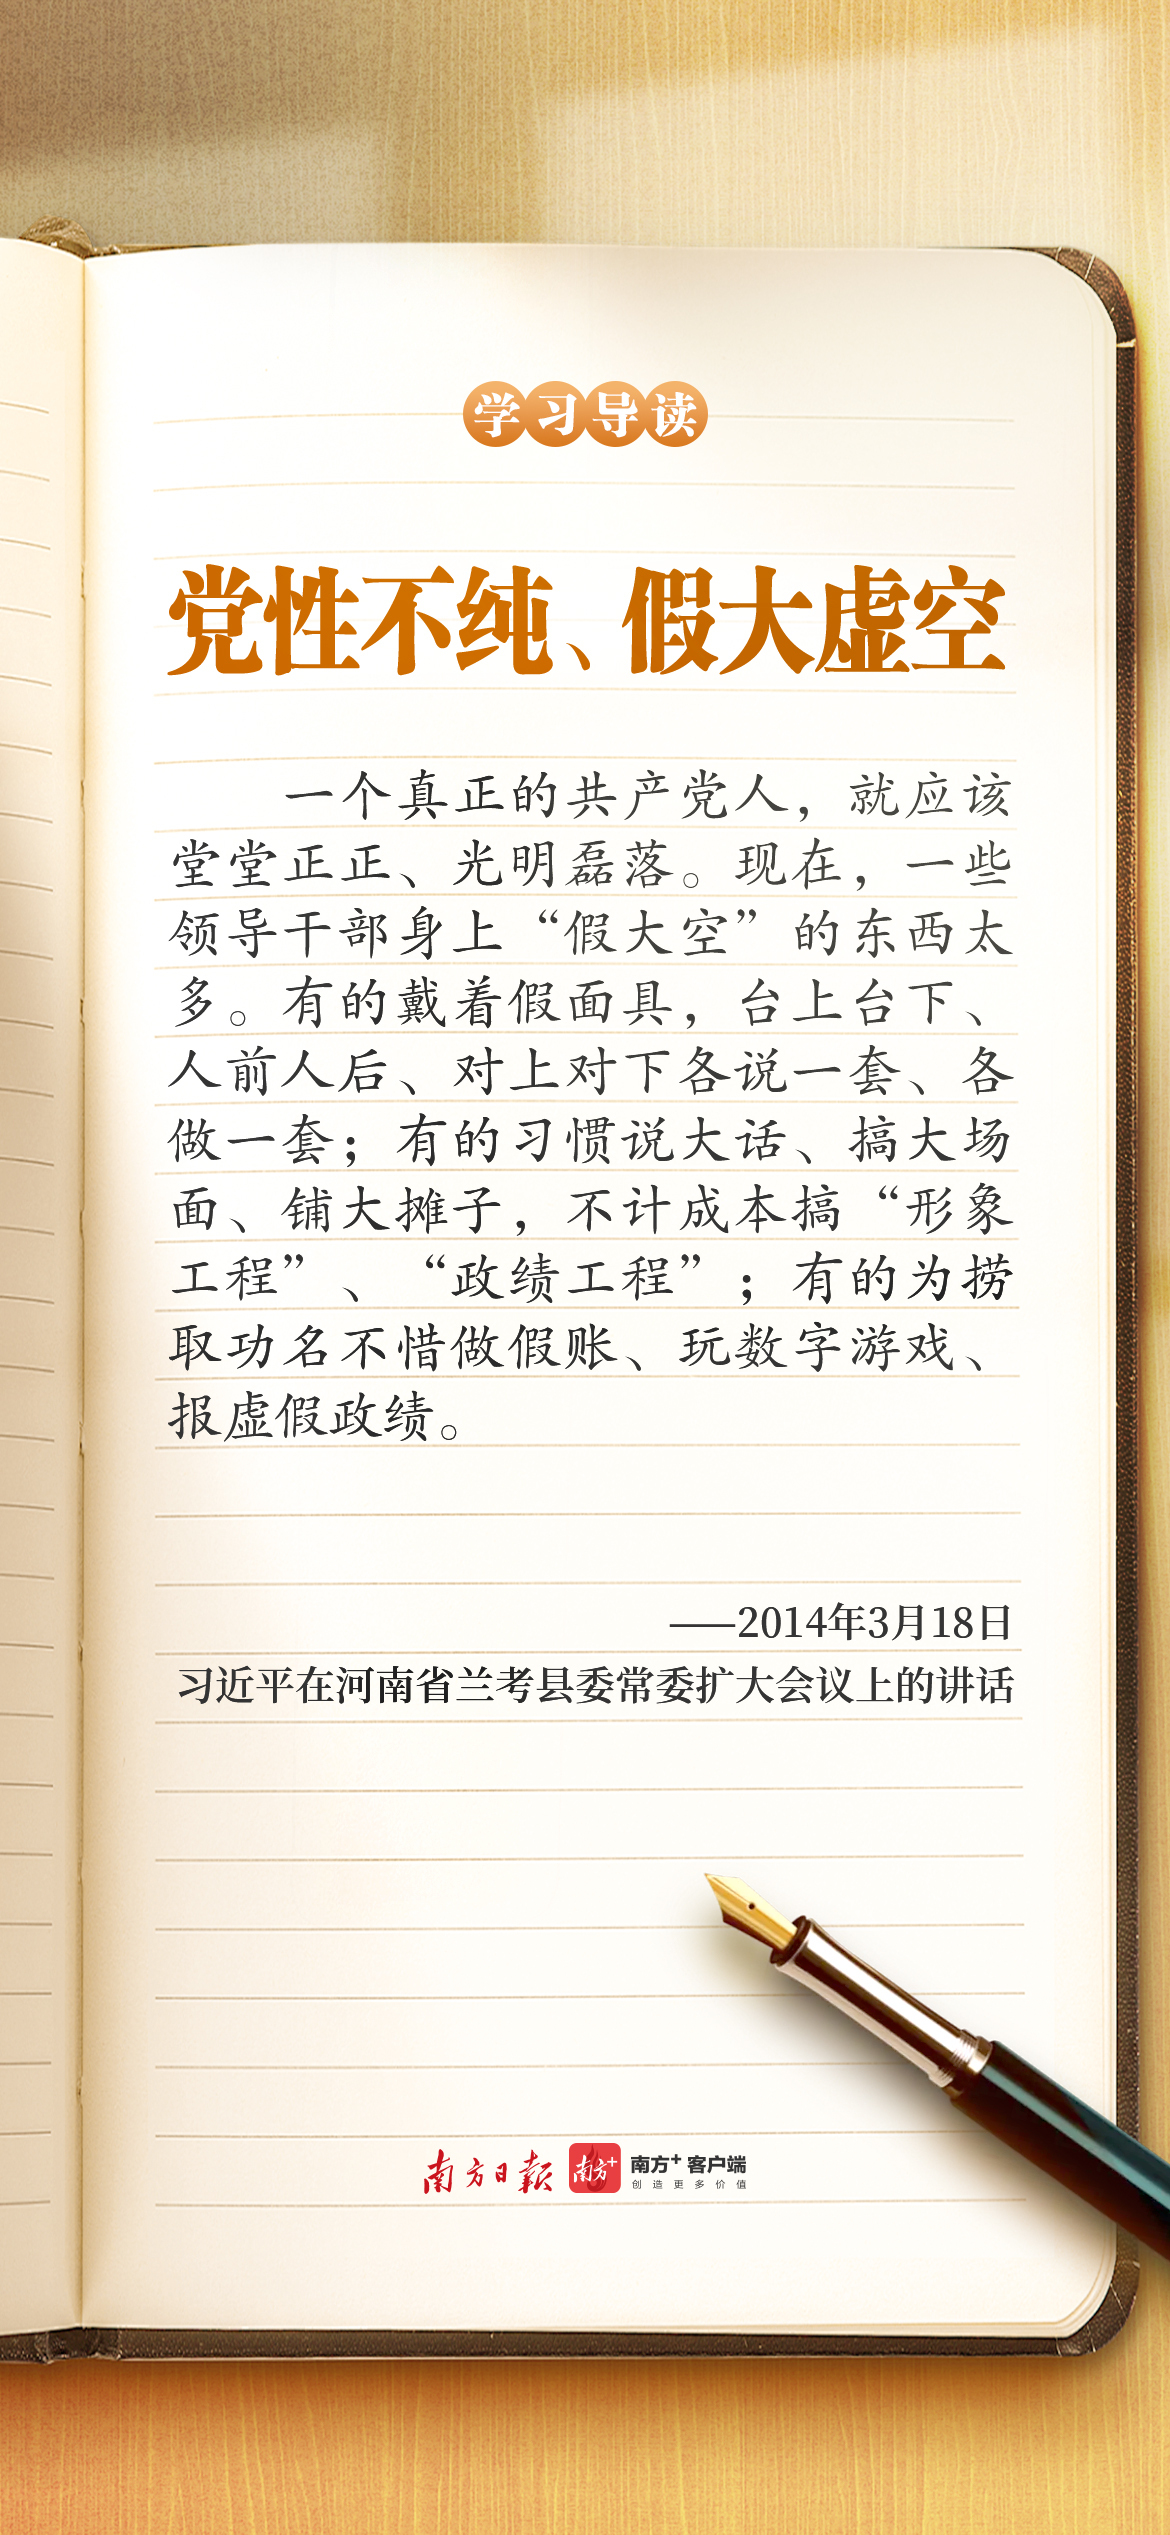 学习导读
党性不纯、假大虚空
一个真正的共产党人，就应该
堂堂正正、光明磊落。现在，一些
领导干部身上“假大空”的东西太
多。有的戴着假面具，台上台下、
人前人后、对上对下各说一套、各
做一套；有的习惯说大话、搞大场
面、铺大摊子，不计成本搞“形象
工程”、“政绩工程”；有的为捞
取功名不惜做假账、玩数字游戏、
报虚假政绩。
——2014年3月18日
习近平在河南省兰考县委常委扩大会议上的讲话
南方日报 南方+ 南方+客户端
创造更多价值